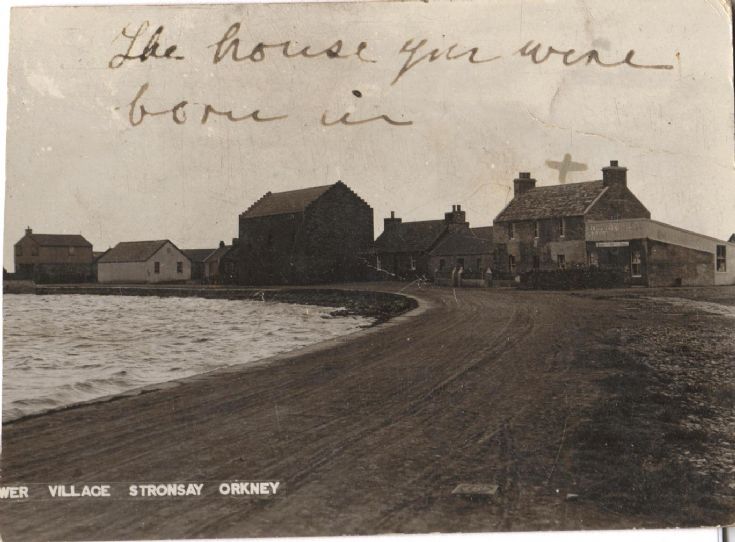 The house you were
born in
WER VILLAGE STRONSAY ORKNEY